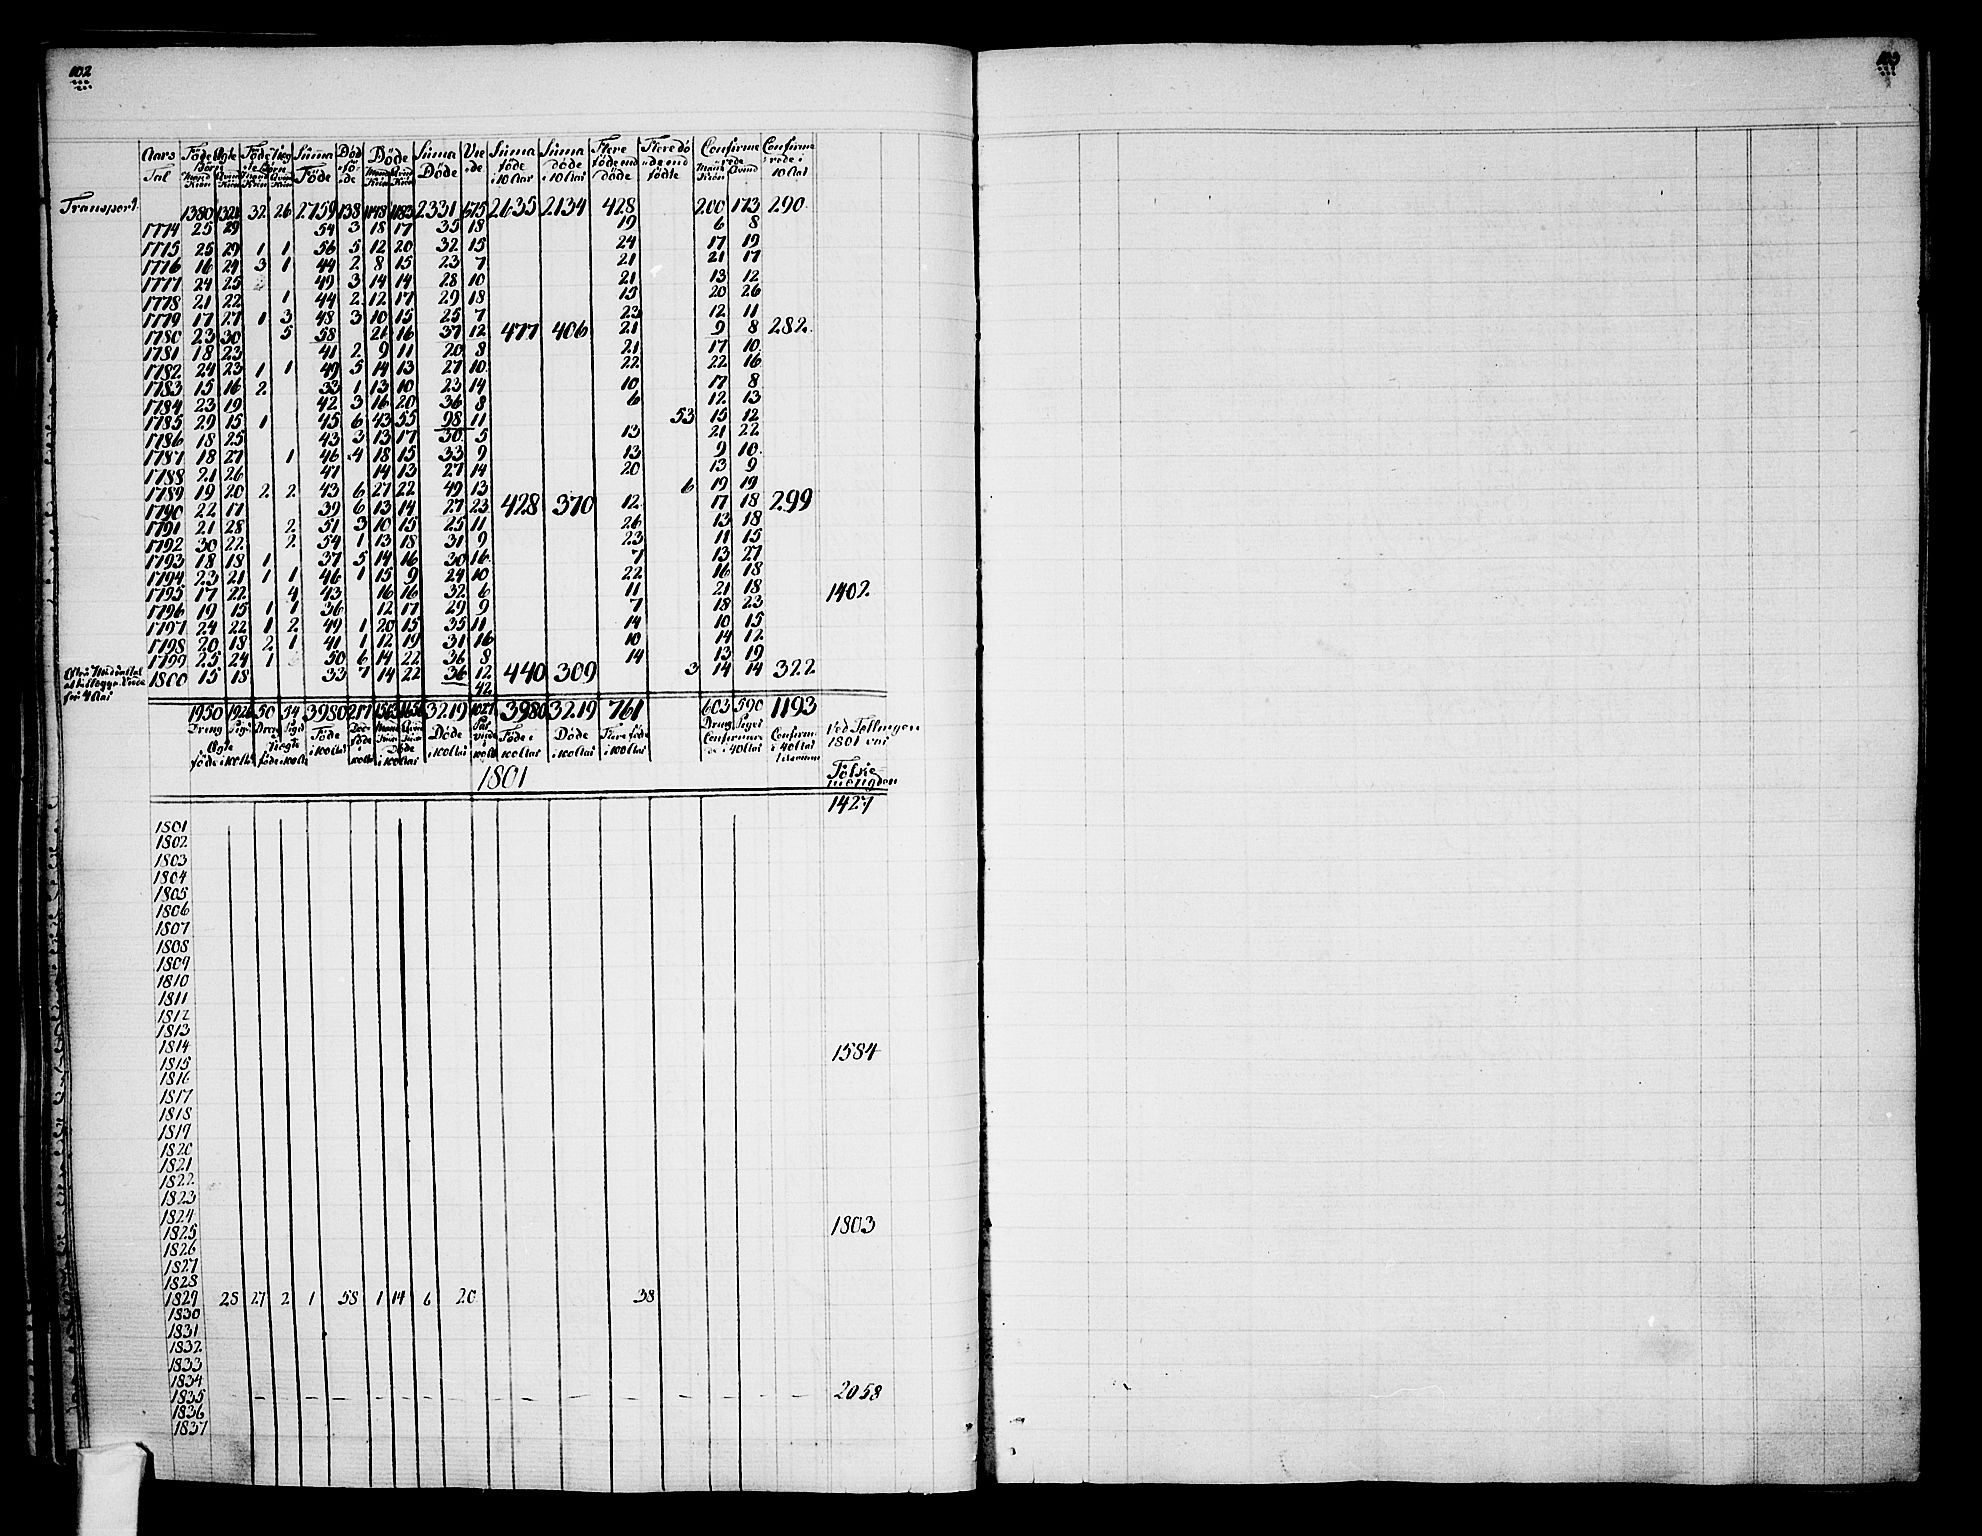 102
103
Aars Tal | Föde Ægte Börn Mand Kiön | Qvind Kiön | Föde Uægte Börn Mand Kiön | Qvind Kiön | Suma Föde | Död föde | Döde Mand Kiön | Qvind Kiön | Suma Döde | Viede | Suma föde i 10 Aar | Suma döde i 10 Aar | Flere föde end döde | Flere döde end födte | Confirmerede Mand Kiön | Qvind | Confirmerede i 10 Aar
Transport. 1380 1321 32 26 2759 138 1148 1183 2331 675 2635 2134 428 200 173 290
1774 25 29 54 3 18 17 35 18 19 6 8
1775 25 29 1 1 56 5 12 20 32 15 24 17 19
1776 16 24 3 1 44 2 8 15 23 7 21 21 17
1777 24 25 49 3 14 14 28 10 21 13 12
1778 21 22 1 44 2 12 17 29 18 15 20 26
1779 17 27 1 3 48 3 10 15 25 7 23 12 11
1780 23 30 5 58 21 16 37 12 477 406 21 9 8 282
1781 18 23 41 2 9 11 20 8 21 17 10
1782 24 23 1 1 49 5 14 13 27 10 22 22 16
1783 15 16 2 33 1 13 10 23 14 10 17 8
1784 23 19 42 3 16 20 36 8 6 12 13
1785 29 15 1 45 6 43 55 98 11 53 15 12
1786 18 25 43 3 13 17 30 5 13 21 22
1787 18 27 1 46 4 18 15 33 9 13 9 10
1788 21 26 47 14 13 27 14 20 13 9
1789 19 20 2 2 43 6 27 22 49 13 6 19 19
1790 22 17 39 6 13 14 27 23 428 370 12 17 18 299
1791 21 28 2 51 3 10 15 25 11 26 13 18
1792 30 22 2 54 1 13 18 31 9 23 11 15
1793 18 18 1 37 5 14 16 30 16 7 13 27
1794 23 21 1 1 46 1 15 9 24 10 22 16 18
1795 17 22 4 43 16 16 32 6 11 21 18 1402
1796 19 15 1 1 36 12 17 29 9 7 18 23
1797 24 22 1 2 49 1 20 15 35 11 14 10 15
1798 20 18 2 1 41 1 12 19 31 16 10 14 12
1799 25 24 1 50 6 14 22 36 8 14 13 19
1800 15 18 33 7 14 22 36 12 440 309 3 14 14 322
for 4 Aar
42
1950 1926 50 54 3980 217 1563 1656 3219 1027 3980 3219 761 603 590 1193
Dreng Pige Ægte föde i 100 Aar | Dreng Pige Uægte föde i 100 Aar | Föde i 100 Aar | Död föde 100 Aar | Mand Kiön Qvind Kiön Döde i 100 Aar | Döde i 100 Aar | Par viede i 100 Aar | Föde i 100 Aar | Döde i 100 Aar | Flere föde i 100 Aar | Dreng Piger Confirmerede i 40 Aar | Confirm. i 40 Aar tilsamen
Ved Tellingen 1801 var
Folkemengden
1801
1427
1801
1802
1803
1804
1805
1806
1807
1808
1809
1810
1811
1812
1813
1814 1584
1815
1816
1817
1818
1819
1820
1821
1822
1823
1824
1825 1803
1826
1827
1828
1829 25 27 2 1 58 1 14 6 20 38
1830
1831
1832
1833
1834
1835 2058
1836
1837